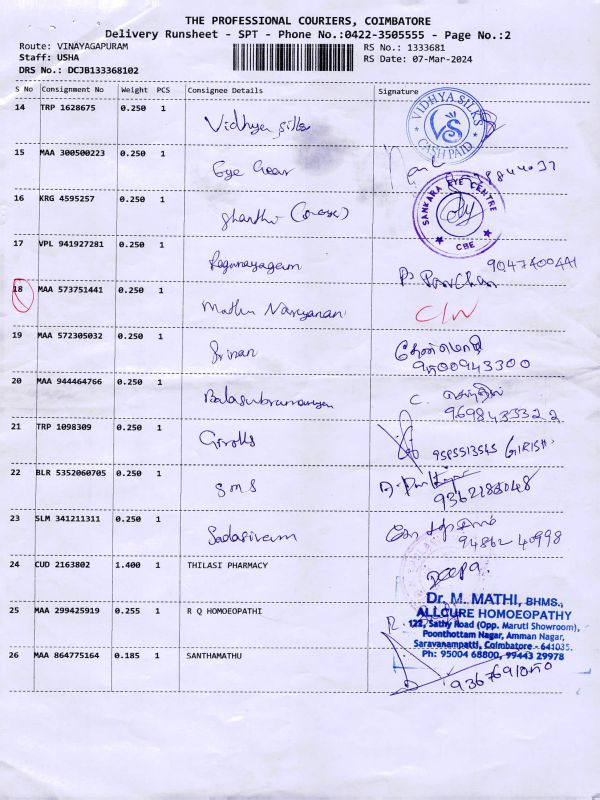 THE PROFESSIONAL COURIERS, COIMBATORE
Delivery Runsheet - SPT - Phone No.:0422-3505555 - Page No.:2
Route: VINAYAGAPURAM
RS No.: 1333681
Staff: USHA
RS Date: 07-Mar-2024
DRS No.: DCJB133368102
S No Consignment No Weight PCS Consignee Details Signature
14 TRP 1628675 0.250 1 Vidhya silks
VIDHYA SILKS
VS
CASH PAID
15 MAA 300500223 0.250 1 Eye Gear
16 KRG 4595257 0.250 1 Shanthi
SANKARA EYE CENTRE
CBE
17 VPL 941927281 0.250 1 Loganayagam
9047400441
18 MAA 573751441 0.250 1 Mathu Narayanan
C/N
19 MAA 572305032 0.250 1 Srinan
தேன்மொழி
9500943300
20 MAA 944464766 0.250 1 Balasubramaniyam
C. செந்தில்
9698433322
21 TRP 1098309 0.250 1
9585513545 GIRISH
22 BLR 5352060705 0.250 1 SMS
9362183048
23 SLM 341211311 0.250 1 Sadasivam
94862 40998
24 CUD 2163802 1.400 1 THILASI PHARMACY
Deepa.
25 MAA 299425919 0.255 1 R Q HOMOEOPATHI
Dr. M. MATHI, BHMS.,
ALLCURE HOMOEOPATHY
122, Sathy Road (Opp. Maruti Showroom),
Poonthottam Nagar, Amman Nagar,
Saravanampatti, Coimbatore - 641035.
Ph: 95004 68800, 99443 29978
26 MAA 864775164 0.185 1 SANTHAMATHU